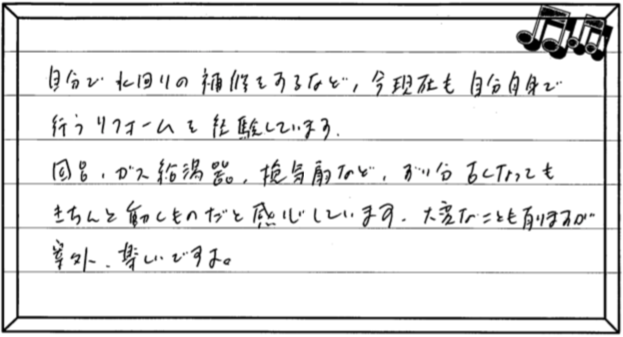 自分で水回りの補修をするなど,今現在も自分自身で
行うリフォームを経験しています.
風呂,ガス給湯器,換気扇など,ずい分古くなっても
きちんと動くものだと感心しています.大変なことも有りますが
案外、楽しいですよ。